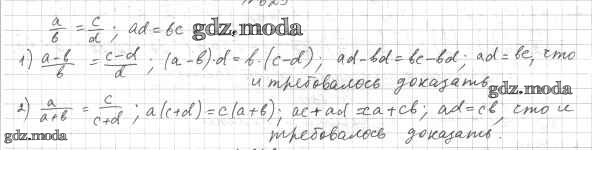 a/b = c/d ; ad = bc gdz.moda
1) (a-b)/b = (c-d)/d ; (a-b)·d = b·(c-d) ; ad-bd = bc-bd ; ad = bc, что
и требовалось доказать. gdz.moda
2) a/(a+b) = c/(c+d) ; a(c+d) = c(a+b) ; ac+ad = ca+cb ; ad = cb, что и
gdz.moda требовалось доказать.